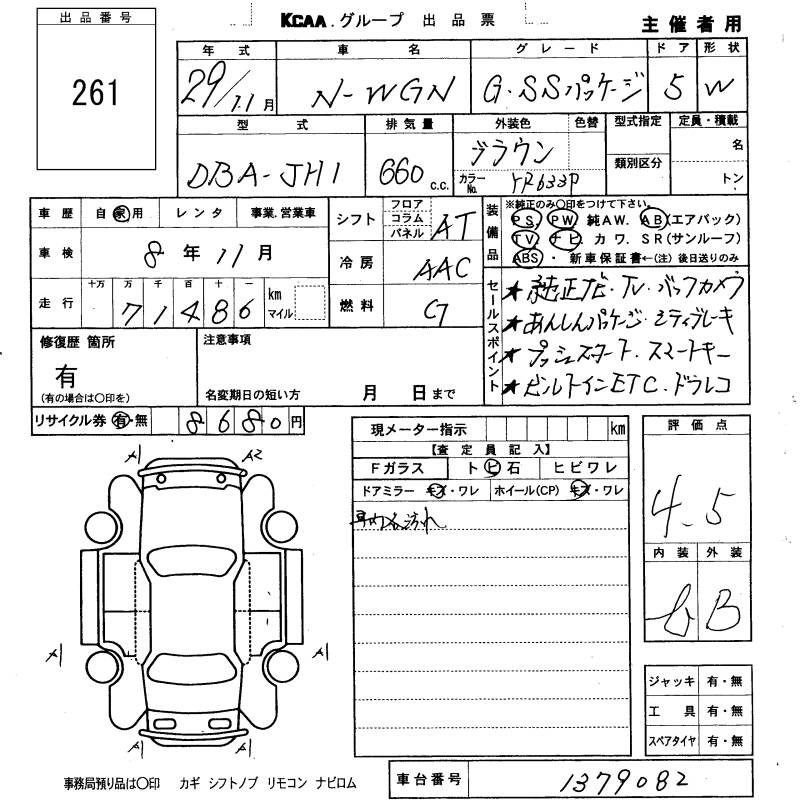 出品番号
261
KCAA.グループ 出品票
主催者用
年式 車名 グレード ドア 形状
29/11月 N-WGN G・SSパッケージ 5 W
型式 排気量 外装色 色替 型式指定 定員・積載
DBA-JH1 660c.c. ブラウン 名
類別区分
カラーNo. YR633P トン
車歴 自家用 レンタ 事業.営業車
車検 8年11月
走行 十万 万 千 百 十 一
71486 km マイル
シフト フロア コラム パネル AT
冷房 AAC
燃料 G
装備品
※純正のみ○印をつけて下さい。
PS. PW 純AW. AB(エアバック)
TV. ナビ. カワ. SR(サンルーフ)
ABS・新車保証書←(注)後日送りのみ
セールスポイント
★純正ナビ・TV・バックカメラ
★あんしんパッケージ・シティブレーキ
★プッシュスタート・スマートキー
★ビルトインETC・ドラレコ
修復歴 箇所
有
(有の場合は○印を)
注意事項
名変期日の短い方 月 日まで
リサイクル券 有・無 8680円
現メーター指示 km
【査定員記入】
Fガラス トビ石 ヒビワレ
ドアミラー キズ・ワレ ホイール(CP) キズ・ワレ
評価点
4.5
内装 外装
B
A1 A2
A1 A1
A1
ジャッキ 有・無
工具 有・無
スペアタイヤ 有・無
事務局預り品は○印 カギ シフトノブ リモコン ナビロム
車台番号 1379082